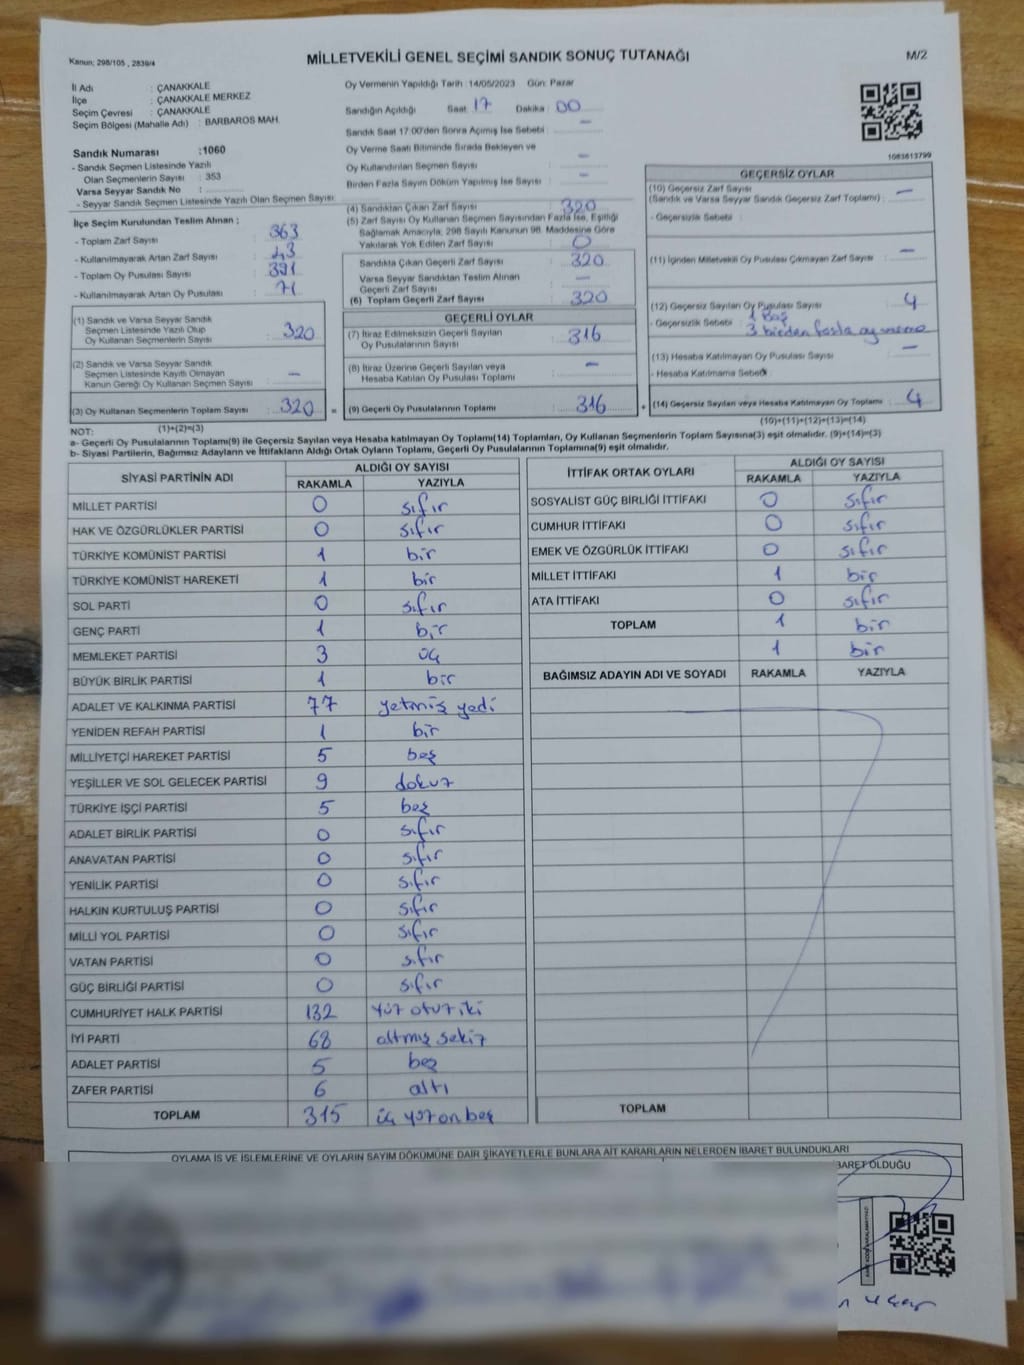 Kanun; 298/105 , 2839/4
MİLLETVEKİLİ GENEL SEÇİMİ SANDIK SONUÇ TUTANAĞI
M/2
İl Adı : ÇANAKKALE
İlçe : ÇANAKKALE MERKEZ
Seçim Çevresi : ÇANAKKALE
Seçim Bölgesi (Mahalle Adı) : BARBAROS MAH.
Sandık Numarası :1060
- Sandık Seçmen Listesinde Yazılı
Olan Seçmenlerin Sayısı : 353
Varsa Seyyar Sandık No :
- Seyyar Sandık Seçmen Listesinde Yazılı Olan Seçmen Sayısı
İlçe Seçim Kurulundan Teslim Alınan ;
- Toplam Zarf Sayısı 363
- Kullanılmayarak Artan Zarf Sayısı 43
- Toplam Oy Pusulası Sayısı 391
- Kullanılmayarak Artan Oy Pusulası 71
(1) Sandık ve Varsa Seyyar Sandık
Seçmen Listesinde Yazılı Olup
Oy Kullanan Seçmenlerin Sayısı : 320
(2) Sandık ve Varsa Seyyar Sandık
Seçmen Listesinde Kayıtlı Olmayan
Kanun Gereği Oy Kullanan Seçmen Sayısı : –
(3) Oy Kullanan Seçmenlerin Toplam Sayısı : 320 =
(1)+(2)=(3)
Oy Vermenin Yapıldığı Tarih :14/05/2023 Gün: Pazar
Sandığın Açıldığı Saat 17 Dakika : 00
Sandık Saat 17:00'den Sonra Açılmış İse Sebebi : –
Oy Verme Saati Bitiminde Sırada Bekleyen ve
Oy Kullandırılan Seçmen Sayısı : –
Birden Fazla Sayım Döküm Yapılmış İse Sayısı : –
(4) Sandıktan Çıkan Zarf Sayısı : 320
(5) Zarf Sayısı Oy Kullanan Seçmen Sayısından Fazla İse, Eşitliği
Sağlamak Amacıyla, 298 Sayılı Kanunun 98. Maddesine Göre
Yakılarak Yok Edilen Zarf Sayısı : 0
Sandıkta Çıkan Geçerli Zarf Sayısı : 320
Varsa Seyyar Sandıktan Teslim Alınan
Geçerli Zarf Sayısı : –
(6) Toplam Geçerli Zarf Sayısı : 320
GEÇERLİ OYLAR
(7) İtiraz Edilmeksizin Geçerli Sayılan
Oy Pusulalarının Sayısı : 316
(8) İtiraz Üzerine Geçerli Sayılan veya
Hesaba Katılan Oy Pusulası Toplamı : –
(9) Geçerli Oy Pusulalarının Toplamı : 316 +
1083613799
GEÇERSİZ OYLAR
(10) Geçersiz Zarf Sayısı
(Sandık ve Varsa Seyyar Sandık Geçersiz Zarf Toplamı) : –
- Geçersizlik Sebebi :
(11) İçinden Milletvekili Oy Pusulası Çıkmayan Zarf Sayısı : –
(12) Geçersiz Sayılan Oy Pusulası Sayısı : 4
1 Boş
- Geçersizlik Sebebi : 3 birden fazla oy verme
(13) Hesaba Katılmayan Oy Pusulası Sayısı : –
- Hesaba Katılmama Sebebi :
(14) Geçersiz Sayılan veya Hesaba Katılmayan Oy Toplamı : 4
(10)+(11)+(12)+(13)=(14)
NOT:
a- Geçerli Oy Pusulalarının Toplamı(9) ile Geçersiz Sayılan veya Hesaba katılmayan Oy Toplamı(14) Toplamları, Oy Kullanan Seçmenlerin Toplam Sayısına(3) eşit olmalıdır. (9)+(14)=(3)
b- Siyasi Partilerin, Bağımsız Adayların ve İttifakların Aldığı Ortak Oyların Toplamı, Geçerli Oy Pusulalarının Toplamına(9) eşit olmalıdır.
SİYASİ PARTİNİN ADI ALDIĞI OY SAYISI
RAKAMLA YAZIYLA
MİLLET PARTİSİ 0 sıfır
HAK VE ÖZGÜRLÜKLER PARTİSİ 0 sıfır
TÜRKİYE KOMÜNİST PARTİSİ 1 bir
TÜRKİYE KOMÜNİST HAREKETİ 1 bir
SOL PARTİ 0 sıfır
GENÇ PARTİ 1 bir
MEMLEKET PARTİSİ 3 üç
BÜYÜK BİRLİK PARTİSİ 1 bir
ADALET VE KALKINMA PARTİSİ 77 yetmiş yedi
YENİDEN REFAH PARTİSİ 1 bir
MİLLİYETÇİ HAREKET PARTİSİ 5 beş
YEŞİLLER VE SOL GELECEK PARTİSİ 9 dokuz
TÜRKİYE İŞÇİ PARTİSİ 5 beş
ADALET BİRLİK PARTİSİ 0 sıfır
ANAVATAN PARTİSİ 0 sıfır
YENİLİK PARTİSİ 0 sıfır
HALKIN KURTULUŞ PARTİSİ 0 sıfır
MİLLİ YOL PARTİSİ 0 sıfır
VATAN PARTİSİ 0 sıfır
GÜÇ BİRLİĞİ PARTİSİ 0 sıfır
CUMHURİYET HALK PARTİSİ 132 yüz otuz iki
İYİ PARTİ 68 altmış sekiz
ADALET PARTİSİ 5 beş
ZAFER PARTİSİ 6 altı
TOPLAM 315 üç yüz on beş
İTTİFAK ORTAK OYLARI ALDIĞI OY SAYISI
RAKAMLA YAZIYLA
SOSYALİST GÜÇ BİRLİĞİ İTTİFAKI 0 sıfır
CUMHUR İTTİFAKI 0 sıfır
EMEK VE ÖZGÜRLÜK İTTİFAKI 0 sıfır
MİLLET İTTİFAKI 1 bir
ATA İTTİFAKI 0 sıfır
TOPLAM 1 bir
1 bir
BAĞIMSIZ ADAYIN ADI VE SOYADI RAKAMLA YAZIYLA
TOPLAM
OYLAMA İŞ VE İŞLEMLERİNE VE OYLARIN SAYIM DÖKÜMÜNE DAİR ŞİKAYETLERLE BUNLARA AİT KARARLARIN NELERDEN İBARET BULUNDUKLARI
BARET OLDUĞU